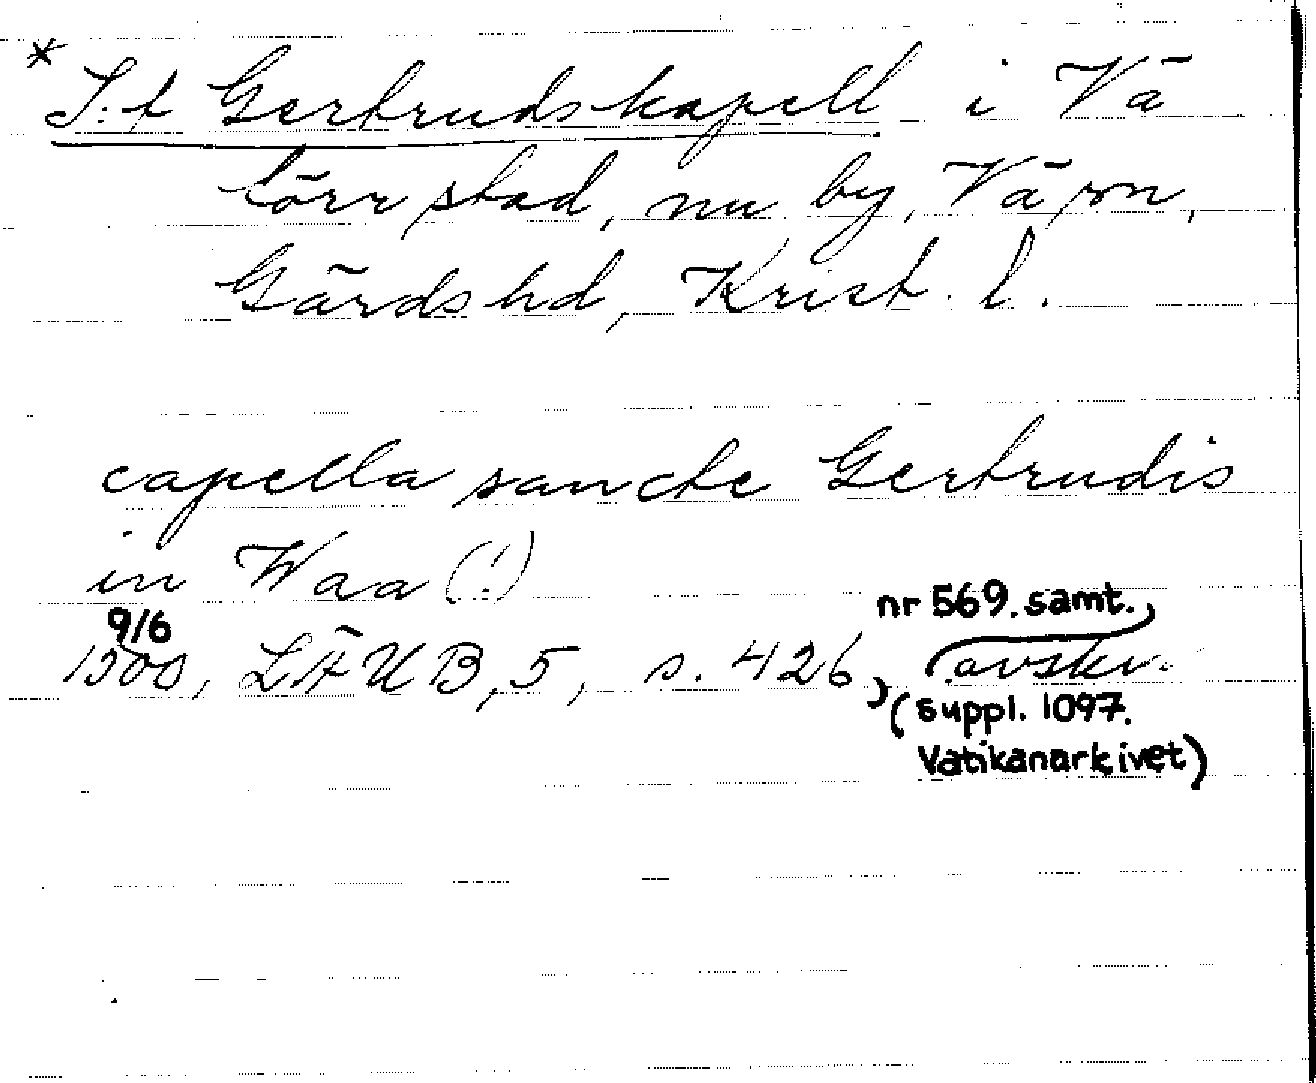 * S:t Gertrudskapell i Vä
förr stad, nu by, Vä sn,
Gärds hd, Krist. l.
capella sancte Gertrudis
in Waa (!)
9/6
1500, LÄUB, 5, s. 426, nr 569. samt. avskr.
(suppl. 1097.
Vatikanarkivet)